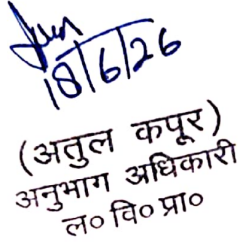 18/6/26
(अतुल कपूर)
अनुभाग अधिकारी
ल० वि० प्रा०